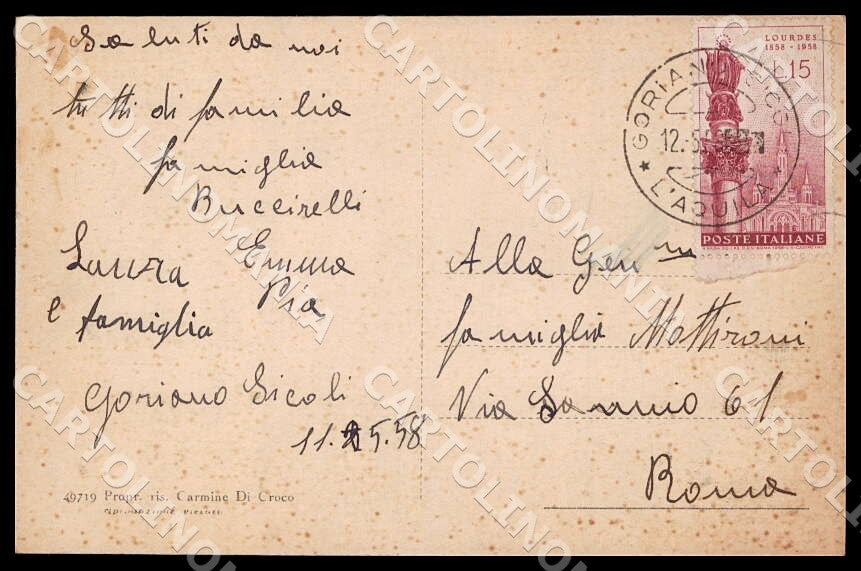 Saluti da noi
tutti di familia
famiglia
Buccirelli
Laura Emma
e Pia
famiglia
Goriano Sicoli
11.5.58
49719 Propr. ris. Carmine Di Croco
LOURDES
1858 - 1958
L.15
POSTE ITALIANE
GORIANO SICOLI
12.5
L'AQUILA
Alla Gen ma
famiglia Mattironi
Via Sannio 61
Roma
CARTOLINOMANIA